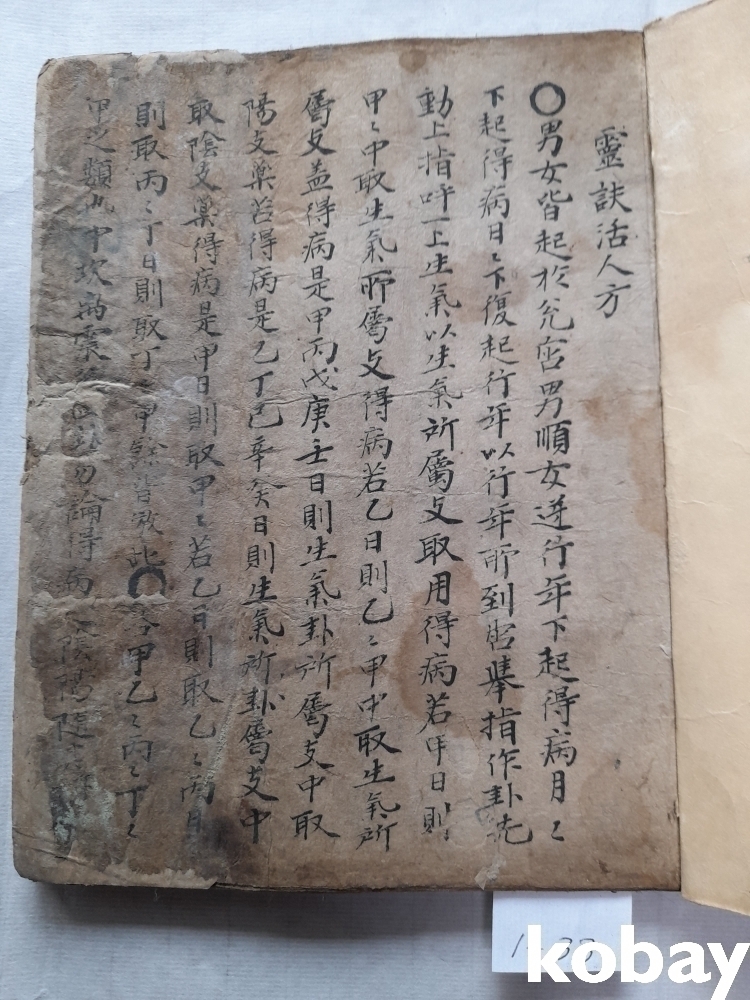 靈訣活人方
〇男女皆起於兌宮男順女逆行年下起得病月〻
下起得病日〻下復起行年以行年所到宮擧指作卦先
動上指呼一上生氣以生氣所屬爻取用得病若甲日則
甲〻中取生氣所屬爻得病若乙日則乙〻甲中取生氣所
屬爻盖得病是甲丙戊庚壬日則生氣卦所屬支中取
陽支藥若得病是乙丁己辛癸日則生氣所卦屬支中
取陰支藥得病是甲日則取甲〻若乙日則取乙〻丙日
則取丙〻丁日則取丁〻甲餘皆倣此〇甲乙〻丙〻丁〻
甲之類也中坎 震 勿論得病 陰陽隨
1-33
kobay